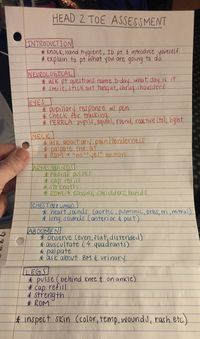 HEAD 2 TOE ASSESSMENT
INTRODUCTION
* knock, hand hygiene, ID pt & introduce yourself
* explain to pt what you are going to do
NEUROLOGICAL
* ask pt questions name, bday, what day is it
* smile, stick out tongue, shrug shoulders
EYES
* pupillary response w/ pen
* check eye tracking
* PERRLA- pupils, equal, round, reactive to L, light
NECK
* ask about any pain/tenderness
* palpate throat
* ROM → "no" "yes" motion
ARMS/HANDS
* radial pulse
* cap refill
* strength
* ROM → elbows, shoulders, hands
CHEST
* heart sounds (aortic, pulmonic, erbs, tri, mitral)
* lung sounds (anterior & post)
ABDOMEN
* observe (even, flat, distended)
* auscultate (4 quadrants)
* palpate
* ask about BM & urinary
LEGS
* pulse (behind knee & on ankle)
* cap refill
* strength
* ROM
* inspect skin (color, temp, wounds, rash etc)